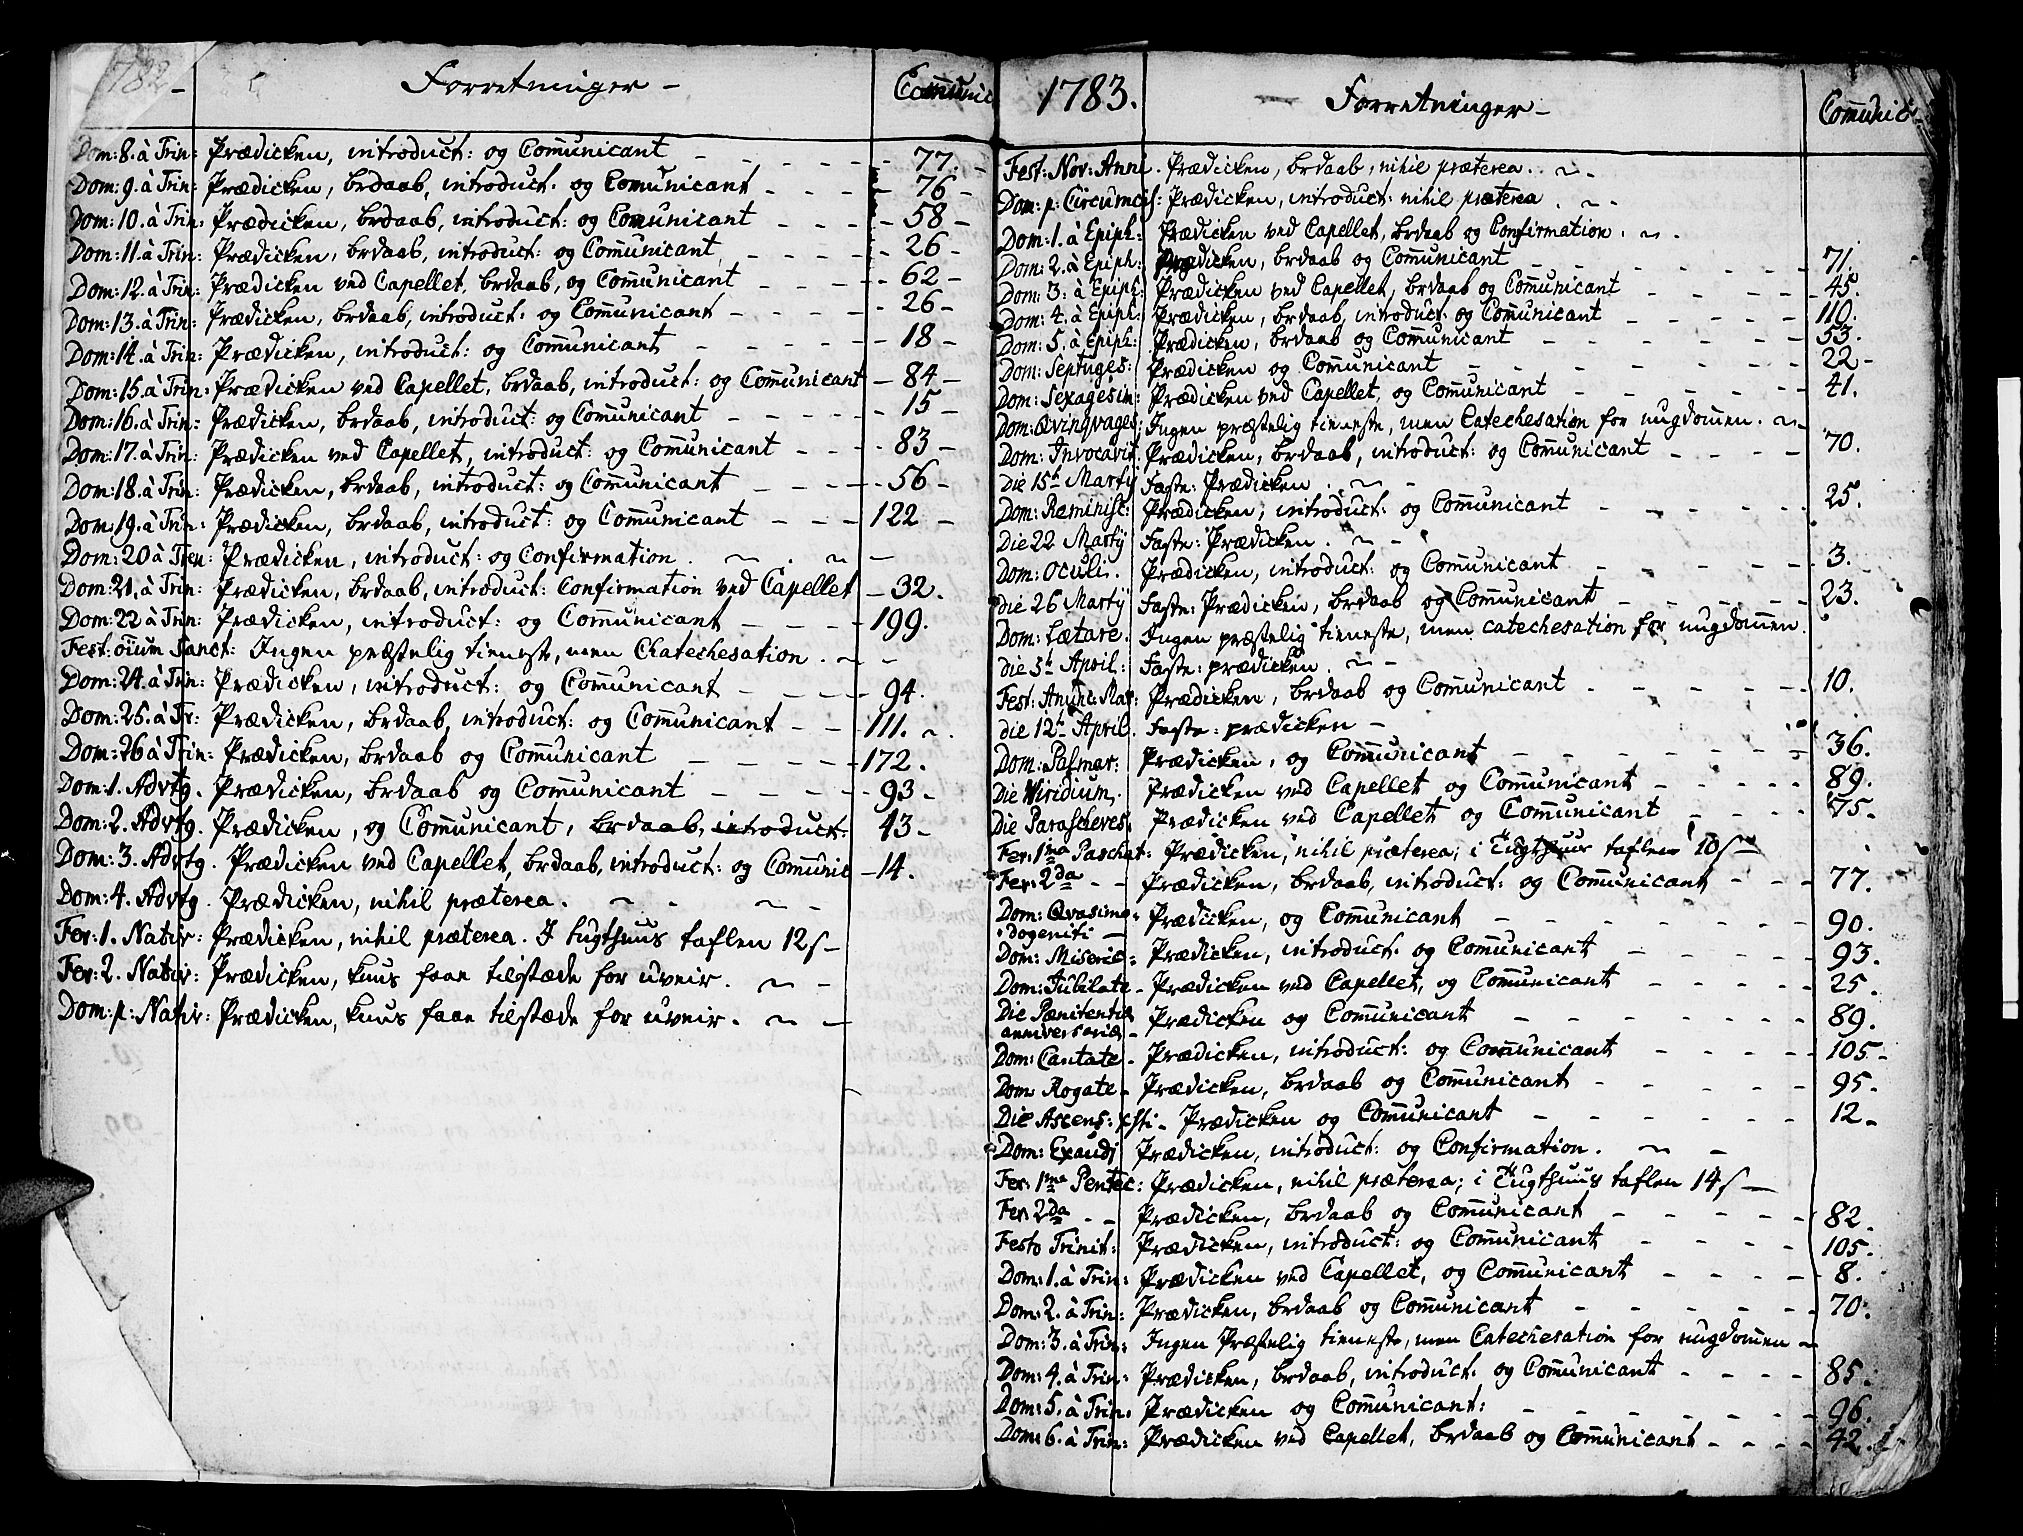 1782 - Forretninger - Com̄unic
Dom: 8. à Trin: Prædicken, introduct: og Com̄unicant - - - - - - 77.
Dom: 9. à Trin: Prædicken, brdaab, introduct: og Com̄unicant - - - - 76 -
Dom: 10. à Trin: Prædicken, brdaab, introduct: og Com̄unicant - - - - 58 -
Dom: 11. à Trin: Prædicken, brdaab, introduct: og Com̄unicant, - - - - - 26 -
Dom: 12. à Trin: Prædicken ved Capellet, brdaab, og Com̄unicant - - - - 62 -
Dom: 13. à Trin: Prædicken, brdaab, introduct: og Com̄unicant - - - - - 26 -
Dom: 14. à Trin: Prædicken, introduct: og Com̄unicant - - - - - - 18 -
Dom: 15. à Trin: Prædicken ved Capellet, brdaab, introduct: og Com̄unicant - 84 -
Dom: 16. à Trin: Prædicken, brdaab, introduct: og Com̄unicant - - - - - 15 -
Dom: 17. à Trin: Prædicken ved Capellet, introduct: og Com̄unicant - - - - 83 -
Dom: 18. à Trin: Prædicken, brdaab, introduct: og Com̄unicant - - - - - 56 -
Dom: 19. à Trin: Prædicken, brdaab, introduct: og Com̄unicant - - - 122 -
Dom: 20 à Tren: Prædicken, introduct: og Confirmation . ~ . ~ -
Dom: 21. à Trin: Prædicken, brdaab, introduct: Confirmation ved Capellet - 32.
Dom: 22 à Trin: Prædicken, introduct: og Com̄unicant - - - - 199.
Fest: om̄ium Sanct: Ingen præstelig tieneste, men Chatechesation . ~ -
Dom: 24. à Trin: Prædicken, introduct: og Com̄unicant - - - - - 94.
Dom: 25. à Tr: Prædicken, brdaab, introduct: og Com̄unicant - - - 111. ~.
Dom: 26 à Trin: Prædicken, brdaab og Com̄unicant - - - - - 172.
Dom: 1. Advtg. Prædicken, brdaab og Com̄unicant - - - - - 93 -
Dom: 2. Advtg. Prædicken, og Com̄unicant, brdaab, introduct: 43 -
Dom: 3. Advtg. Prædicken ved Capellet, brdaab, introduct: og Com̄unic - 14.
Dom: 4. Advtg. Prædicken, nihil præterea . ~ - ~ -
Fer: 1. Nativ: Prædicken, nihil præterea. I tugthuus taflen 12 s -
Fer: 2. Nativ: Prædicken, kuus faae tilstæde for uveir . ~ -
Dom: p: Nativ: Prædicken, kuus faae tilstæde for uveir . ~ -
1783. Forretninger - Com̄unic -
Fest: Nov: Anni. Prædicken, brdaab, nihil præterea . ~ -
Dom: p: Circumcis: Prædicken, introduct: nihil præterea . ~ -
Dom: 1. à Epiph: Prædicken ved Capellet, brdaab og Confirmation . ~ .
Dom: 2. à Epiph: Prædicken, brdaab og Com̄unicant - - - - - - 71.
Dom: 3. à Epiph: Prædicken ved Capellet, brdaab og Com̄unicant - - - - - 45.
Dom: 4. à Epiph: Prædicken, brdaab, introduct: og Com̄unicant - - - - - 110.
Dom: 5. à Epiph: Prædicken, brdaab og Com̄unicant - - - - - - 53.
Dom: Septuges: Prædicken og Com̄unicant - - - - - - 22 -
Dom: Sexagesin: Prædicken ved Capellet, og Com̄unicant - - - - - - 41.
Dom: Qvingvages: Ingen præstelig tieneste, men Catechesation for ungdom̄en . ~
Dom: Invocavit. Prædicken, brdaab, introduct: og Com̄unicant - - - - 70.
Die 15t Martÿ Faste: Prædicken . ~ -
Dom: Reminisc: Prædicken, introduct: og Com̄unicant - - - - - 25.
Die 22 Martÿ Faste: Prædicken . ~ -
Dom: Oculi. Prædicken, introduct: og Com̄unicant - - - - - - 3.
Die 26 Martÿ Faste: Prædicken, brdaab og Com̄unicant - - - - - 23.
Dom: Lætare. Ingen præstelig tieneste, men catechesation for ungdom̄en.
Die 5t April: Faste: prædicken . ~ -
Fest: Anunc: Mar: Prædicken, brdaab og Com̄unicant - - - - - - 10.
Die 12t April. Faste: prædicken -
Dom: Palmar: Prædicken, og Com̄unicant - - - - - - - 36.
Die Viridium, Prædicken ved Capellet og Com̄unicant - - - - - 89.
Die Parasceves, Prædicken ved Capellet og Com̄unicant - - - - 75.
Fer: 1ma Paschat: Prædicken, nihil præterea; i Tugthuus taflen 10 s -
Fer: 2da - - Prædicken, brdaab, introduct: og Com̄unicant - - - 77.
Dom: Qvasimo-
dogeniti - Prædicken, og Com̄unicant - - - - - - - 90.
Dom: Miseric: Prædicken, introduct: og Com̄unicant - - - - - 93.
Dom: Jubilate - Prædicken ved Capellet, og Com̄unicant - - - - - 25.
Die Pænitentiæ
anniversariæ - Prædicken og Com̄unicant - - - - - - - 89.
Dom: Cantate - Prædicken, introduct: og Com̄unicant - - - - - 105 -
Dom: Rogate - Prædicken, brdaab og Com̄unicant - - - - - - 95 -
Die Ascens: Xsti - Prædicken og Com̄unicant - - - - - - - 12 -
Dom: Exaudi Prædicken, introduct: og Confirmation . ~ -
Fer: 1ma Pentec: Prædicken, nihil præterea; i Tugthuus taflen 14 s -
Fer 2da - - Prædicken, brdaab og Com̄unicant - - - - - - 82.
Festo Trinit: Prædicken, introduct: og Com̄unicant - - - - - 105.
Dom: 1. à Trin: Prædicken ved Capellet, og Com̄unicant - - - - - 8.
Dom: 2. à Trin: Prædicken, brdaab og Com̄unicant - - - - - - 70.
Dom: 3. à Trin: Ingen Præstelig tieneste, men Catechesation for ungdom̄en ~
Dom: 4. à Trin: Prædicken, brdaab, introduct: og Com̄unicant - - - - 85.
Dom: 5. à Trin: Prædicken og Com̄unicant: - - - - - - - 96.
Dom: 6. à Trin: Prædicken ved Capellet, brdaab og Com̄unicant - - - - 42.